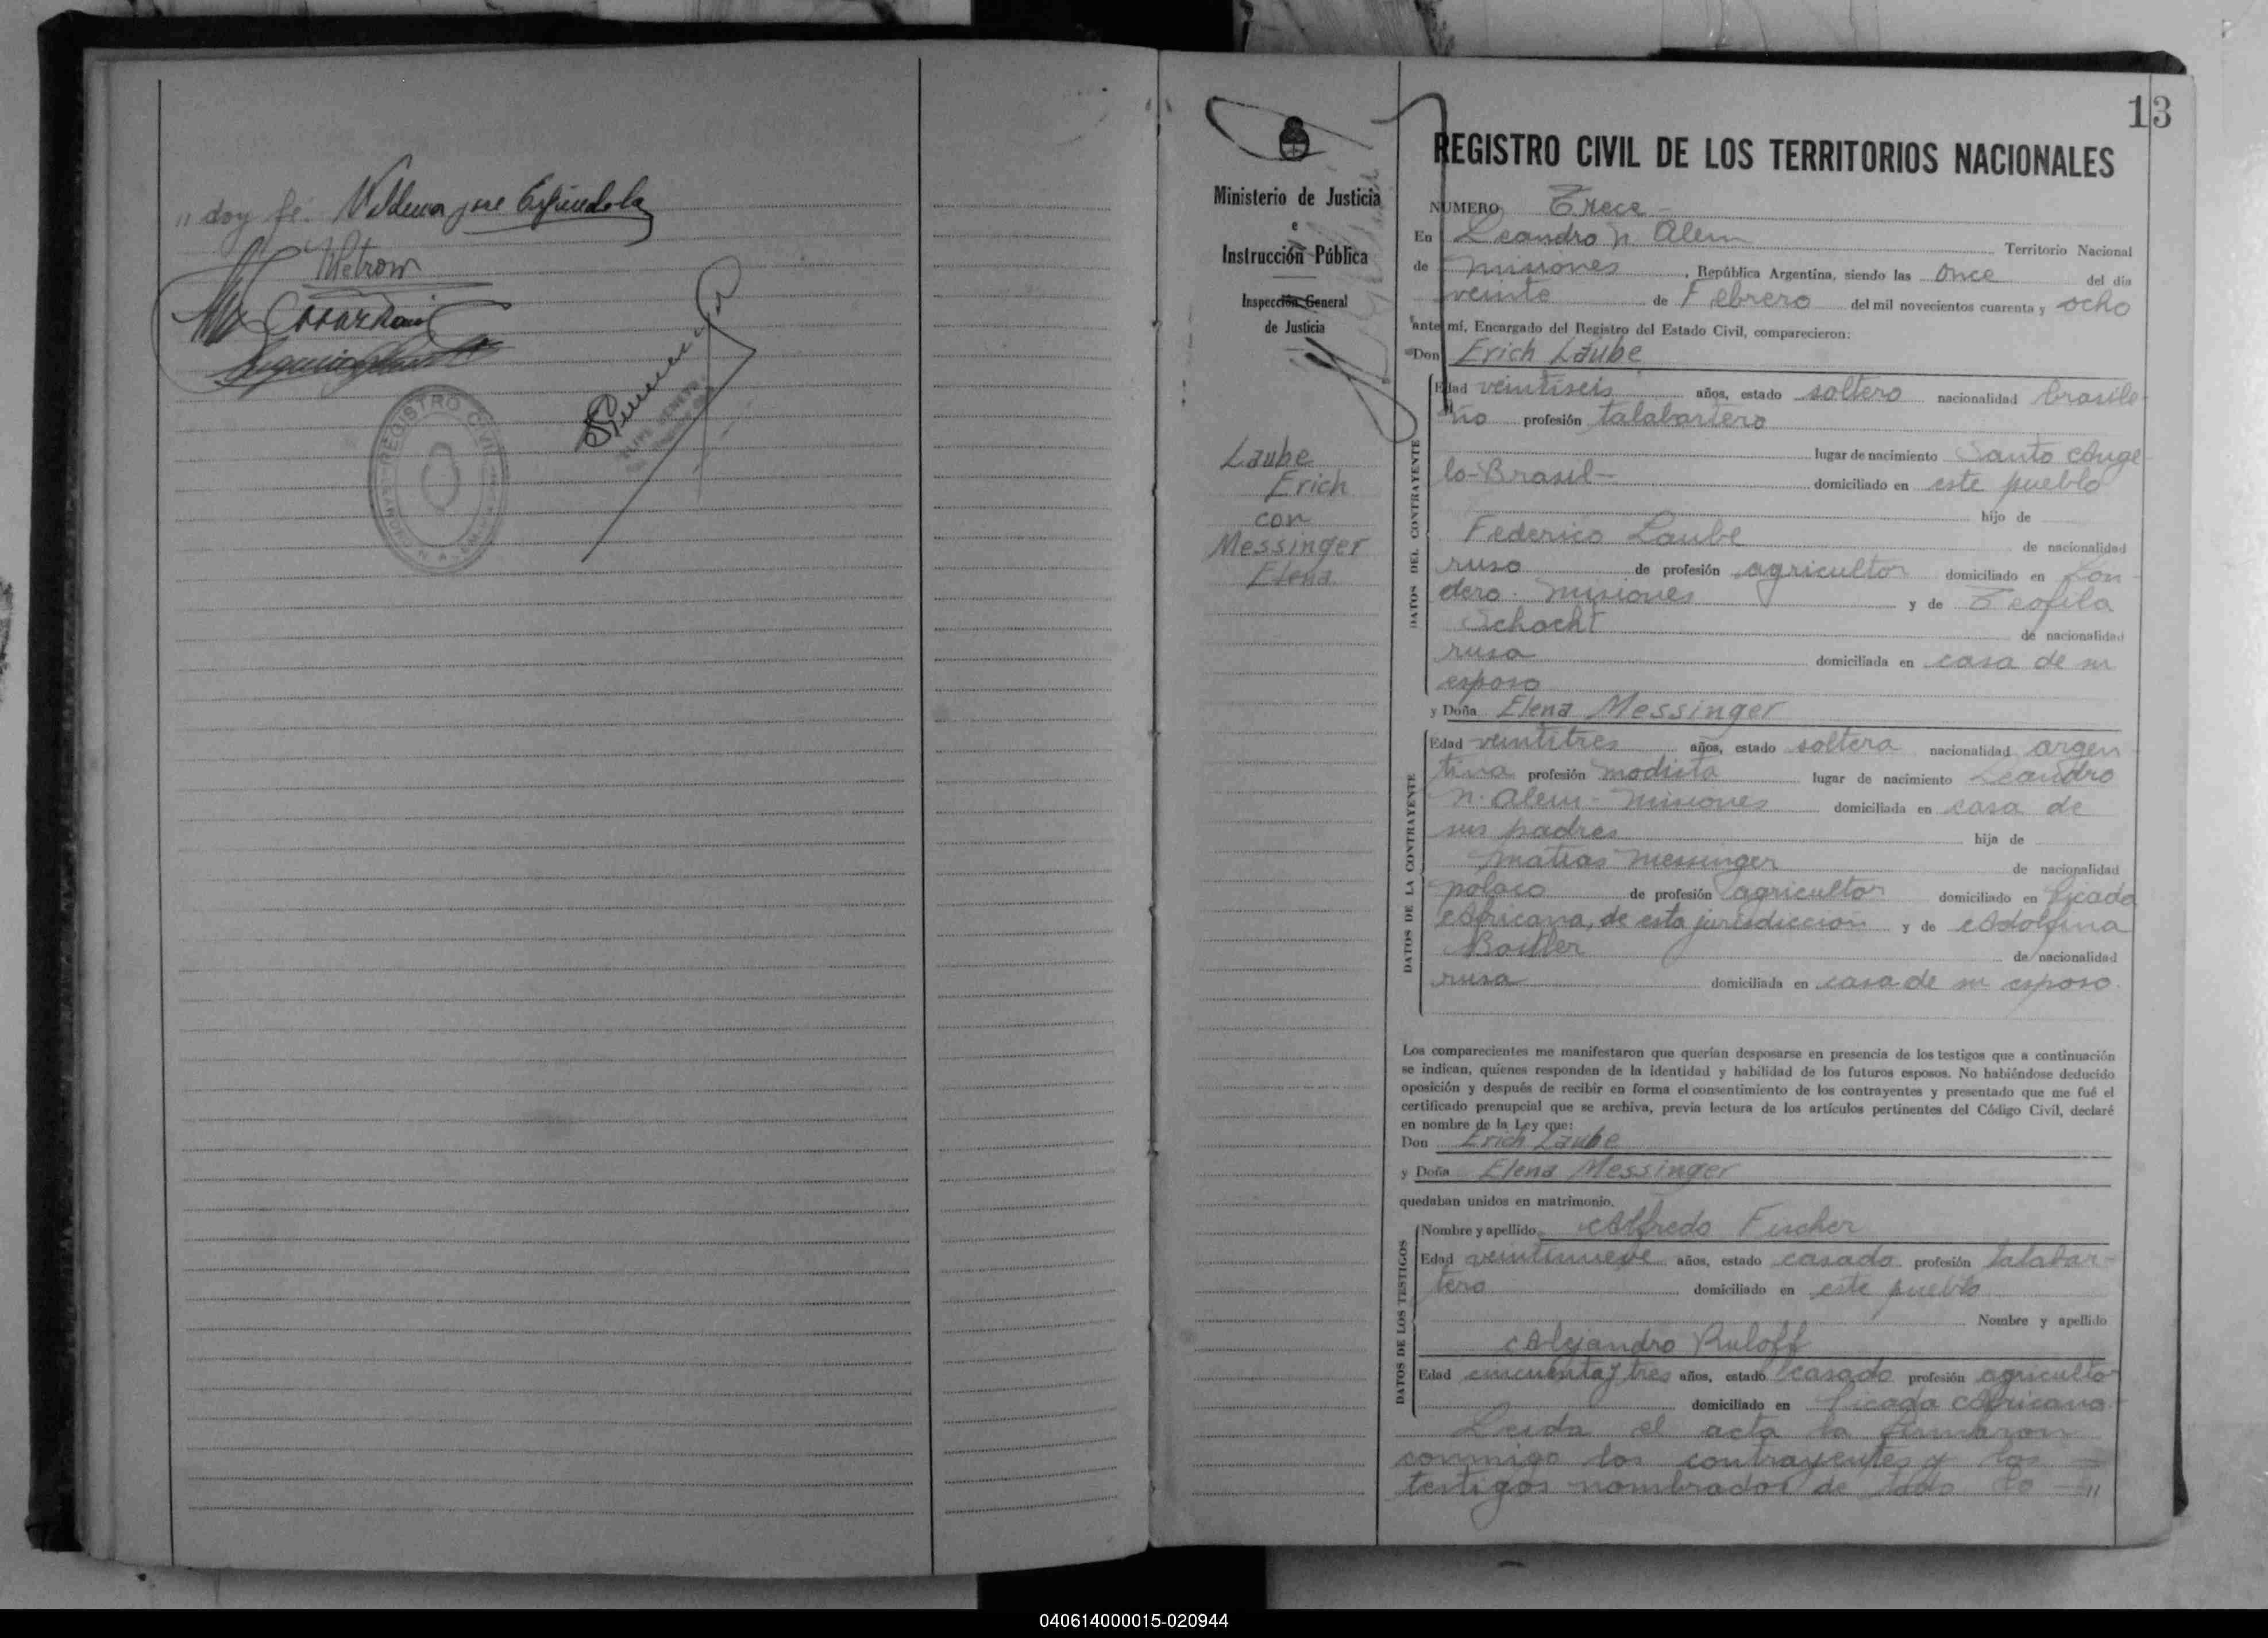 " doy fé.
REGISTRO CIVIL
13
Ministerio de Justicia
e
Instrucción Pública
Inspección General
de Justicia
Laube
Erich
con
Messinger
Elena
REGISTRO CIVIL DE LOS TERRITORIOS NACIONALES
NUMERO Trece -
En Leandro N. Alem Territorio Nacional
de Misiones , República Argentina, siendo las once del día
veinte de Febrero del mil novecientos cuarenta y ocho
ante mí, Encargado del Registro del Estado Civil, comparecieron:
Don Erich Laube
DATOS DEL CONTRAYENTE
Edad veintiseis años, estado soltero nacionalidad brasile-
ño profesión talabartero
lugar de nacimiento Santo Ange-
lo - Brasil - domiciliado en este pueblo
hijo de
Federico Laube de nacionalidad
ruso de profesión agricultor domiciliado en Bon-
dero . Misiones y de Teofila
Schacht de nacionalidad
rusa domiciliada en casa de su
esposo
y Doña Elena Messinger
DATOS DE LA CONTRAYENTE
Edad veintitres años, estado soltera nacionalidad argen-
tina profesión modista lugar de nacimiento Leandro
N. Alem - Misiones domiciliada en casa de
sus padres hija de
Matias Messinger de nacionalidad
polaco de profesión agricultor domiciliado en Picada
Africana, de esta jurisdiccion y de Adolfina
de nacionalidad
rusa domiciliada en casa de su esposo.
Los comparecientes me manifestaron que querían desposarse en presencia de los testigos que a continuación
se indican, quienes responden de la identidad y habilidad de los futuros esposos. No habiéndose deducido
oposición y después de recibir en forma el consentimiento de los contrayentes y presentado que me fué el
certificado prenupcial que se archiva, previa lectura de los artículos pertinentes del Código Civil, declaré
en nombre de la Ley que:
Don Erich Laube
y Doña Elena Messinger
quedaban unidos en matrimonio.
DATOS DE LOS TESTIGOS
Nombre y apellido Alfredo Fischer
Edad veintinueve años, estado casado profesión talabar-
tero domiciliado en este pueblo
Nombre y apellido
Alejandro Ruloff
Edad cincuenta y tres años, estado casado profesión agricultor
domiciliado en Picada Africana
Leida el acta la firmaron
conmigo los contrayentes y los
testigos nombrados de todo lo - "
040614000015-020944